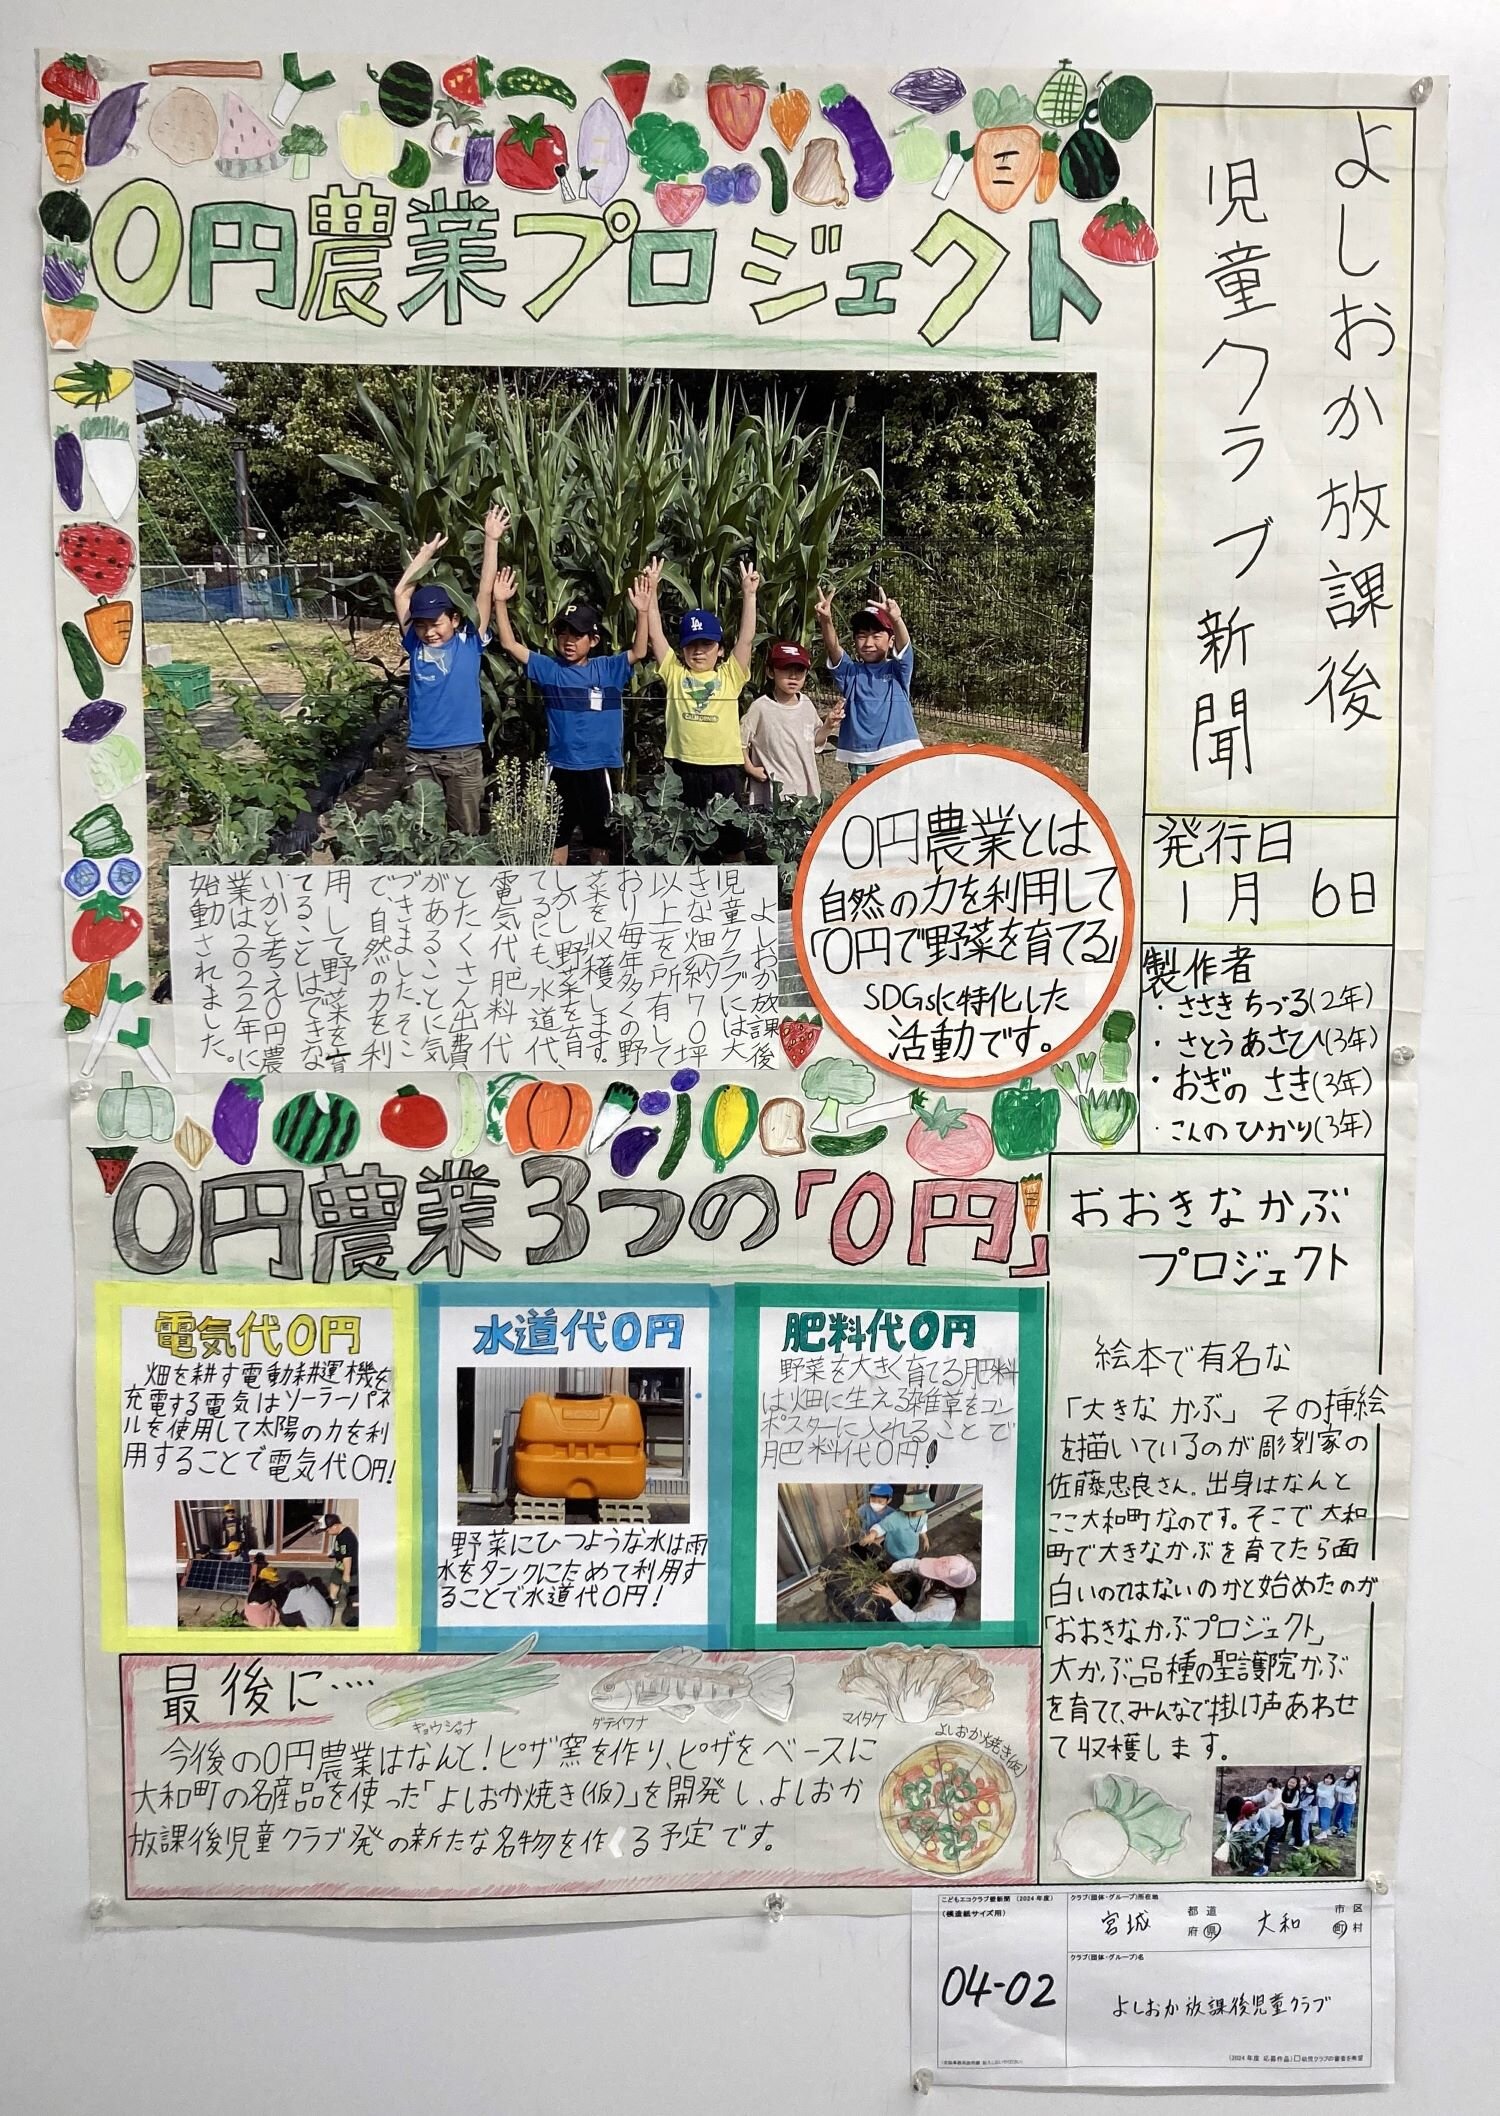 よしおか放課後
児童クラブ新聞
0円農業プロジェクト
発行日
1月 6日
製作者
・ささき ちづる(2年)
・さとう あさひ(3年)
・おぎの さき(3年)
・こんの ひかり(3年)
0円農業とは
自然の力を利用して
「0円で野菜を育てる」
SDGsに特化した
活動です。
よしおか放課後
児童クラブには大
きな畑(約70坪
以上)を所有して
おり毎年多くの野
菜を収穫します。
しかし野菜を育
てるにも、水道代、
電気代肥料代
とたくさん出費
があることに気
づきました。そこ
で、自然の力を利
用して野菜を育
てることはできな
いかと考え0円農
業は2022年に
始動されました。
0円農業3つの「0円」
電気代0円
畑を耕す電動耕運機を
充電する電気はソーラーパネ
ルを使用して太陽の力を利
用することで電気代0円!
水道代0円
野菜にひつような水は雨
水をタンクにためて利用す
ることで水道代0円!
肥料代0円
野菜を大きく育てる肥料
は畑に生える雑草をコン
ポスターに入れることで
肥料代0円!
おおきなかぶ
プロジェクト
絵本で有名な
「大きな かぶ」その挿絵
を描いているのが彫刻家の
佐藤忠良さん。出身はなんと
ここ大和町なのです。そこで大和
町で大きなかぶを育てたら面
白いのではないのかと始めたのが
「おおきなかぶプロジェクト」
大かぶ品種の聖護院かぶ
を育てて、みんなで掛け声あわせ
て収穫します。
最後に‥‥
ギョウジャナ
ダテイワナ
マイタケ
よしおか焼き(仮)
今後の0円農業はなんと!ピザ窯を作り、ピザをベースに
大和町の名産品を使った「よしおか焼き(仮)」を開発し、よしおか
放課後児童クラブ発の新たな名物を作くる予定です。
こどもエコクラブ壁新聞 (2024年度)
(模造紙サイズ用)
04-02
クラブ(団体・グループ)所在地
宮城 都道府県 大和 市区町村
クラブ(団体・グループ)名
よしおか放課後児童クラブ
(2024年度 応募作品)□幼児クラブの審査を希望